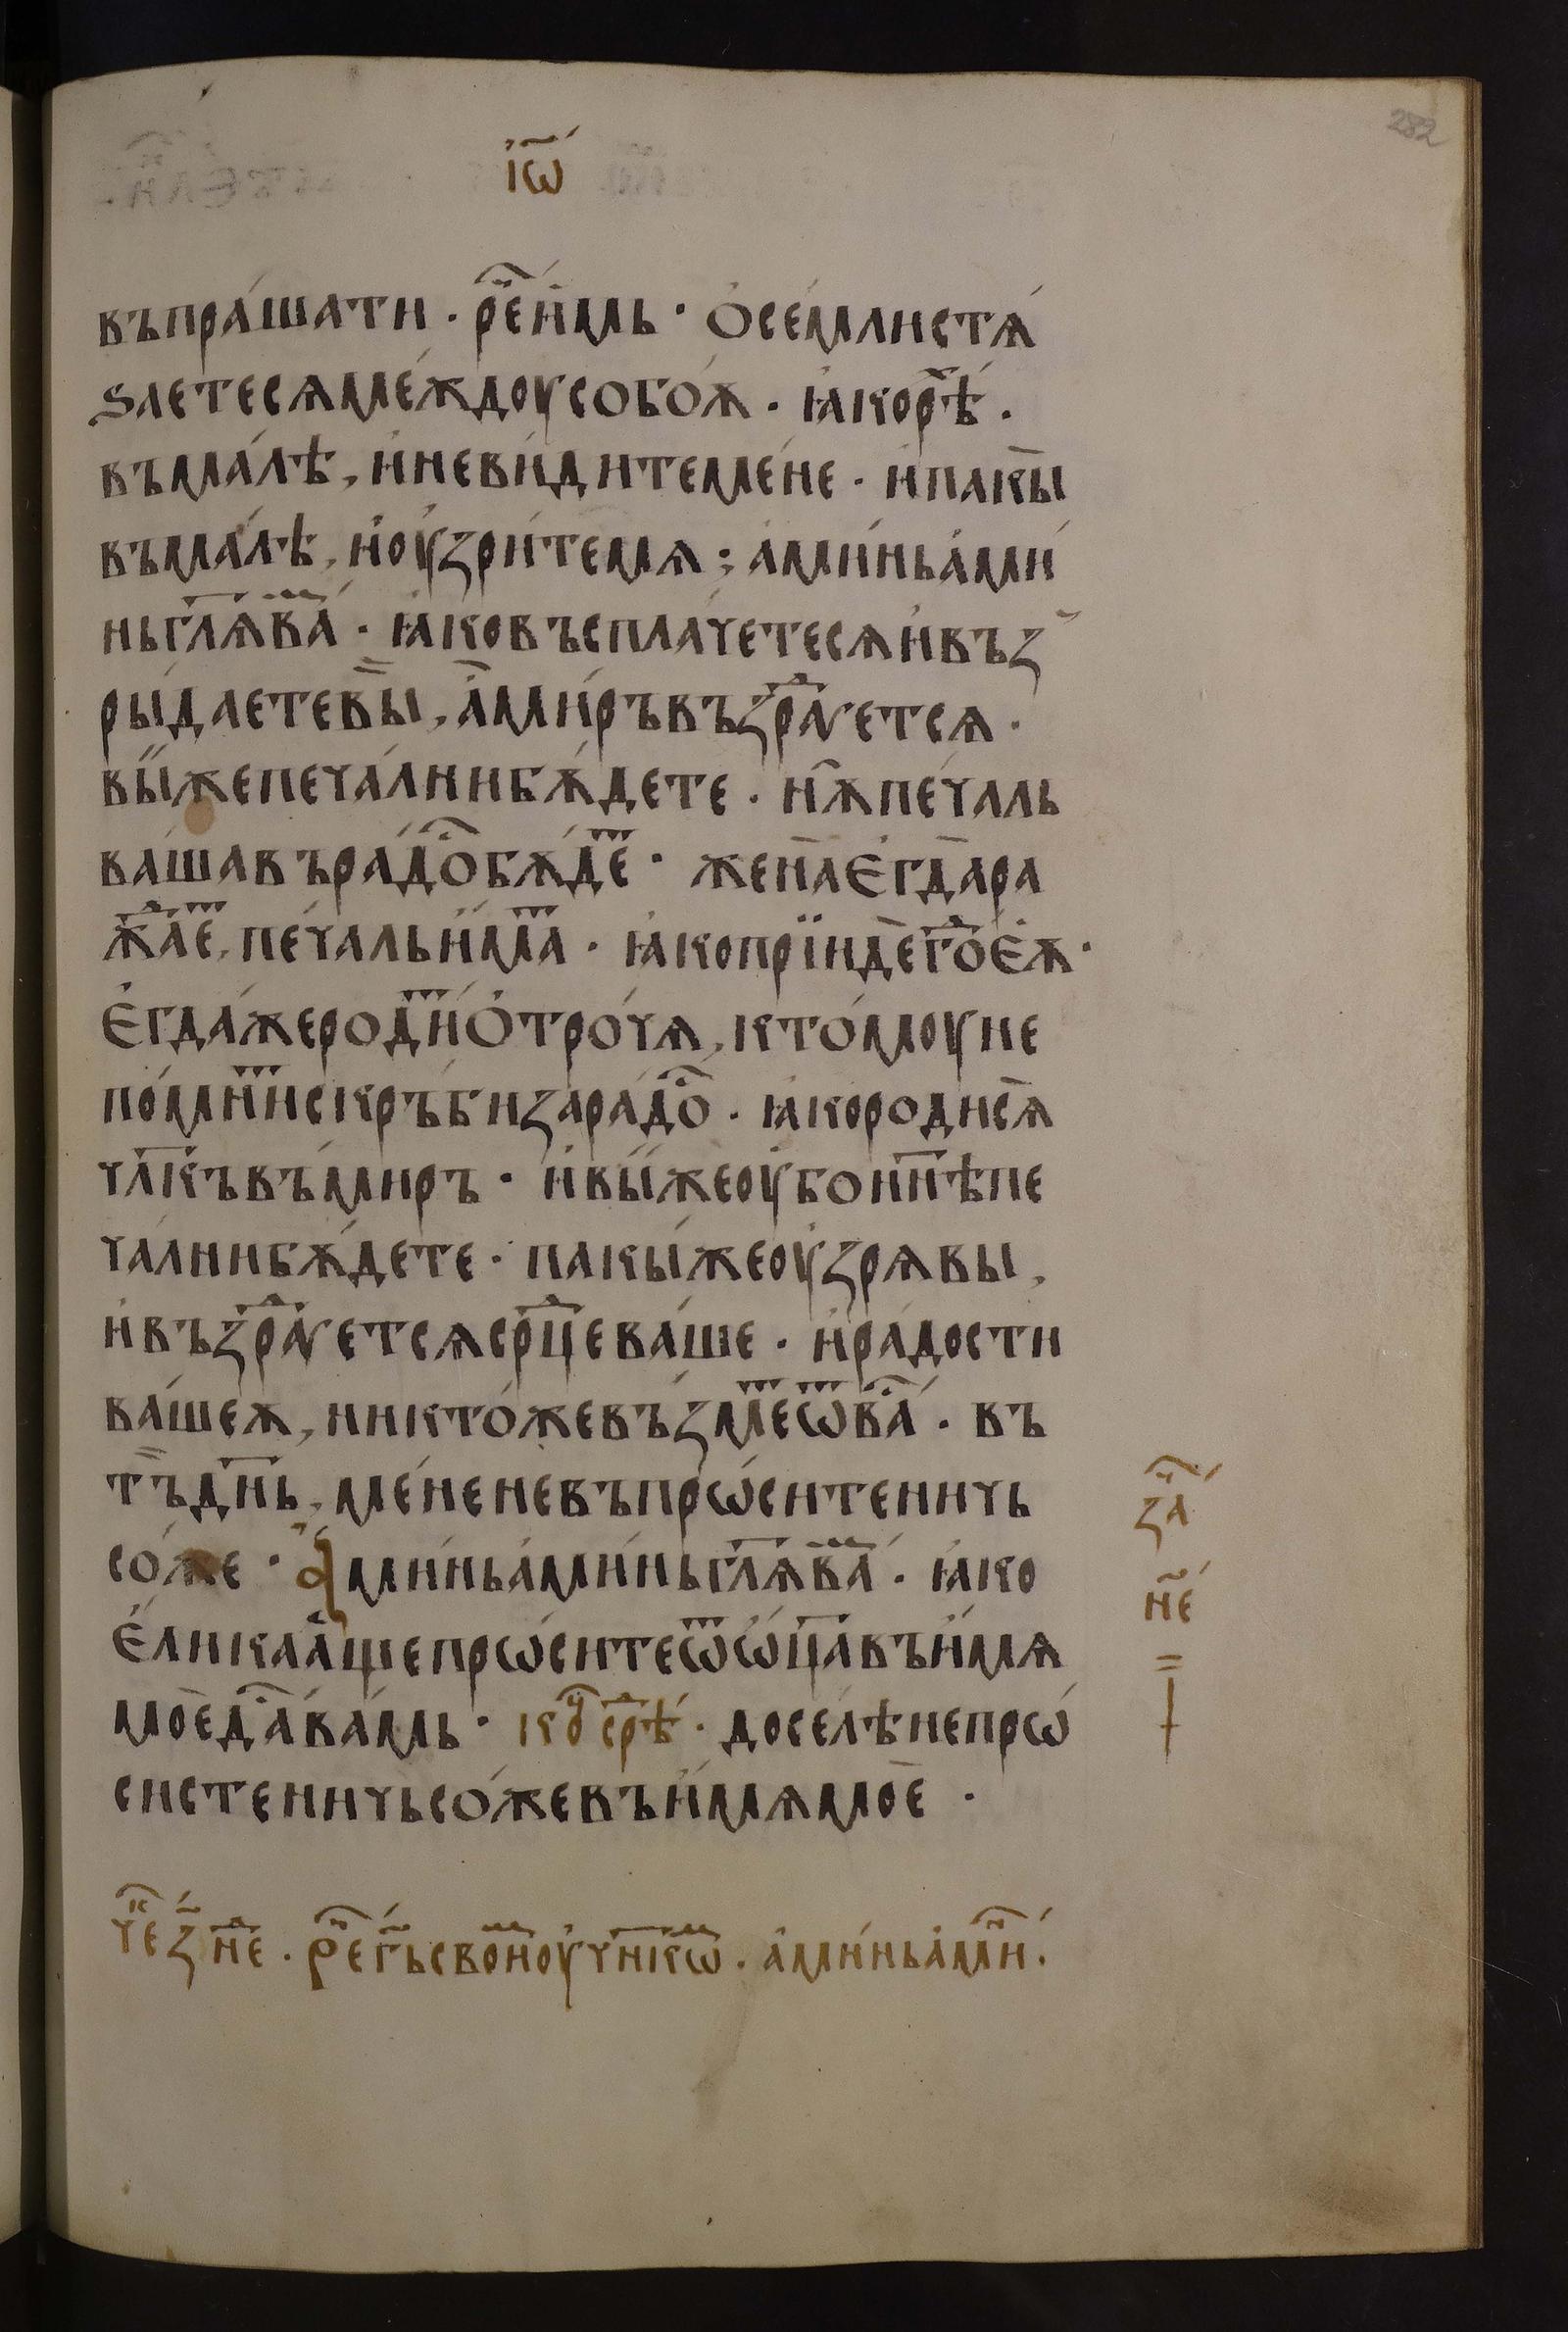 282
і҆ѡ҃
въпра́шати · рⷱ҇е и҆́мь · о҆ се́мли стѧ́
ѕаетесѧ ме́ждоу собо́ѫ · ꙗ҆ко рⷯ҇ѣ ·
въ ма́лѣ, и҆ не ви́дите ме́не · и҆ пакы̀
въ ма́лѣ, и҆ оу҆́зрите мѧ : а҆ми́нь а҆ми́
нь гл҃ѫ ваⷨ · ꙗ҆ко въсплаче́тесѧ и҆ въз
ры́даете вы̏, а҆ миръ възраⷣꙋетсѧ ·
вы́же печа́лни бѫ́дете · нѫ̀ пе́чаль
ва́ша въ ра́доⷭ҇ бѫ́деⷮ · жена̀ є҆гда̀ ра
жⷣаеⷮ, пе́чаль и҆́маⷮ · ꙗ҆ко прїидѐ гоⷣ є҆ѫ̀ ·
є҆гда́же родиⷮ о҆тро́чѧ, кто́моу не
по́мниⷮ скръби за ра́доⷭ҇ · ꙗ҆ко родисѧ̀
чл҃къ въ́ миръ · и҆ вы́же оу҆бо нн҃ѣ пе
ча́лни бѫ́дете · пакы́же оу҆́зрѧ вы,
и҆ въ́зраⷣꙋетсѧ срⷣце ва́ше · и҆ ра́дости
ва́шеѫ, никто́же въ́змеⷮ ѿ ваⷭ҇ · въ
тъ̏ дн҃ь, ме́не не въпрѡ́сите ничь
со́же · А҆ми́нь а҆ми́нь гл҃ѫ ваⷨ · ꙗ҆ко
є҆́лика а҆́ще прѡ́сите ѿ ѡ҆ц҃а въ и҆́мѧ
моѐ даⷭ҇ ва́мь · коⷰ҇ срⷣѣ · досе́лѣ не прѡ́
систе ничьсо́же въ и҆́мѧ моѐ ·
заⷱ҇
не҃
чеⷦ҇ з҃ неⷣ · рⷱ҇е г҃ь свои҆ⷨ оу҆чн҃кѡⷨ · а҆ми́нь а҆миⷩ҇ ·